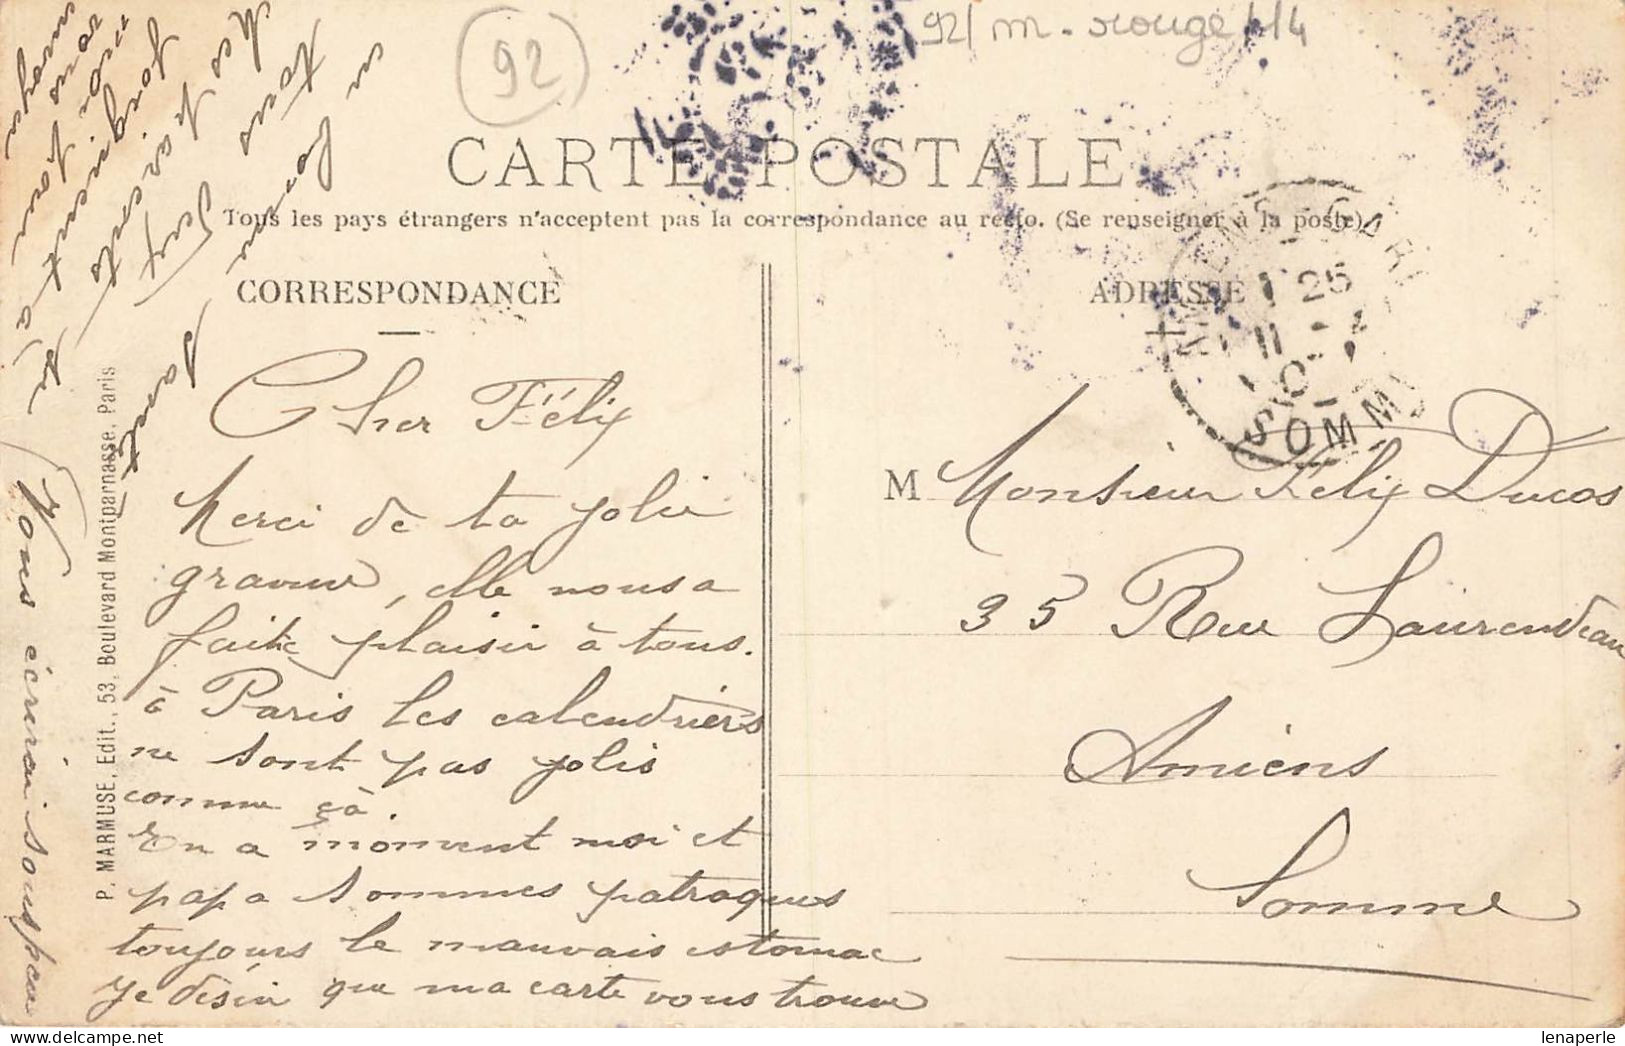 92
92/ m. rouge 1/14
CARTE POSTALE
Tous les pays étrangers n'acceptent pas la correspondance au recto. (Se renseigner à la poste)
CORRESPONDANCE
ADRESSE
AMIENS GARE
25
11
SOMME
Cher Félix
Merci de ta jolie
gravure, elle nous a
faite plaisir à tous.
à Paris les calendriers
ne sont pas jolis
comme çà.
En a moment moi et
papa sommes patraques
toujours le mauvais estomac
je désir que ma carte vous trouve
en bonne santé
tous
Mes parents
joignent à
moi pour
Vous écrirai sous peu
M Monsieur Félix Ducos
35 Rue Laurendeau
Amiens
Somme
P. MARMUSE, Edit., 53, Boulevard Montparnasse, Paris
lenaperle